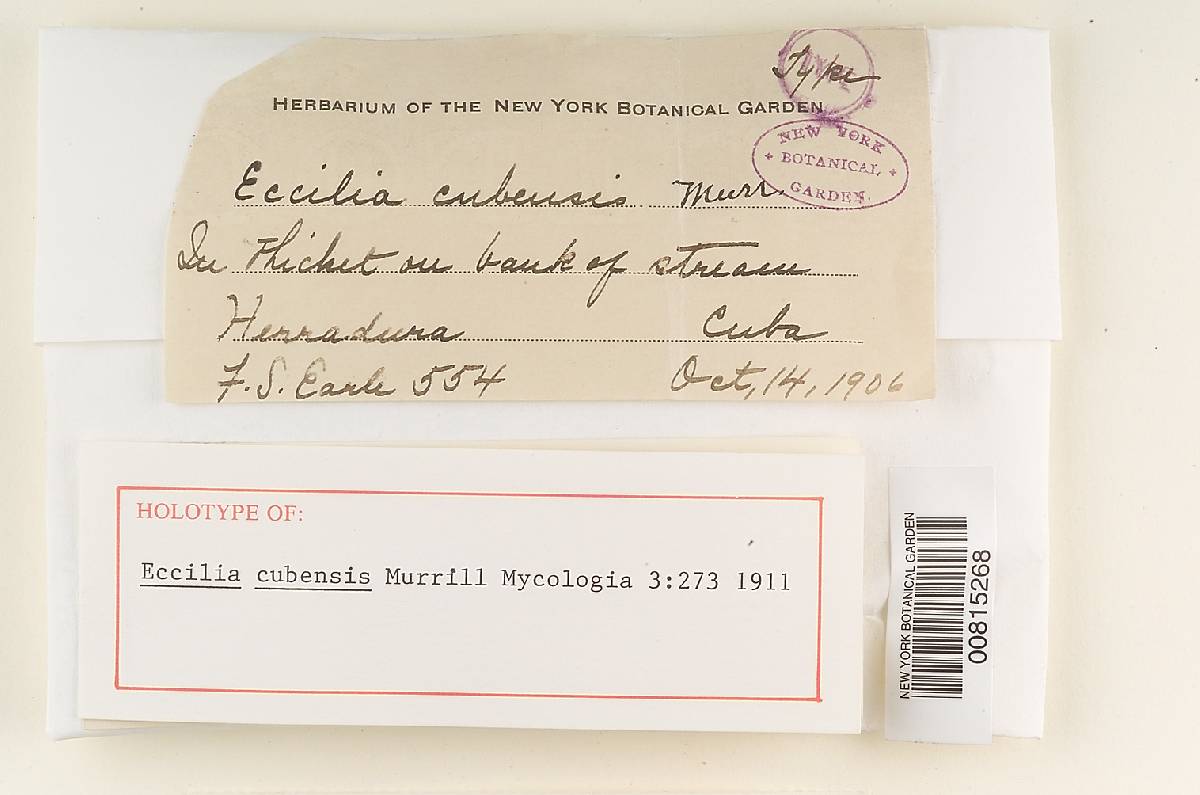 Type
TYPE
HERBARIUM OF THE NEW YORK BOTANICAL GARDEN
NEW YORK
BOTANICAL
GARDEN
Eccilia cubensis Murr.
In thicket on bank of stream
Herradura Cuba
F. S. Earle 554 Oct, 14, 1906
HOLOTYPE OF:
Eccilia cubensis Murrill Mycologia 3:273 1911
NEW YORK BOTANICAL GARDEN
00815268